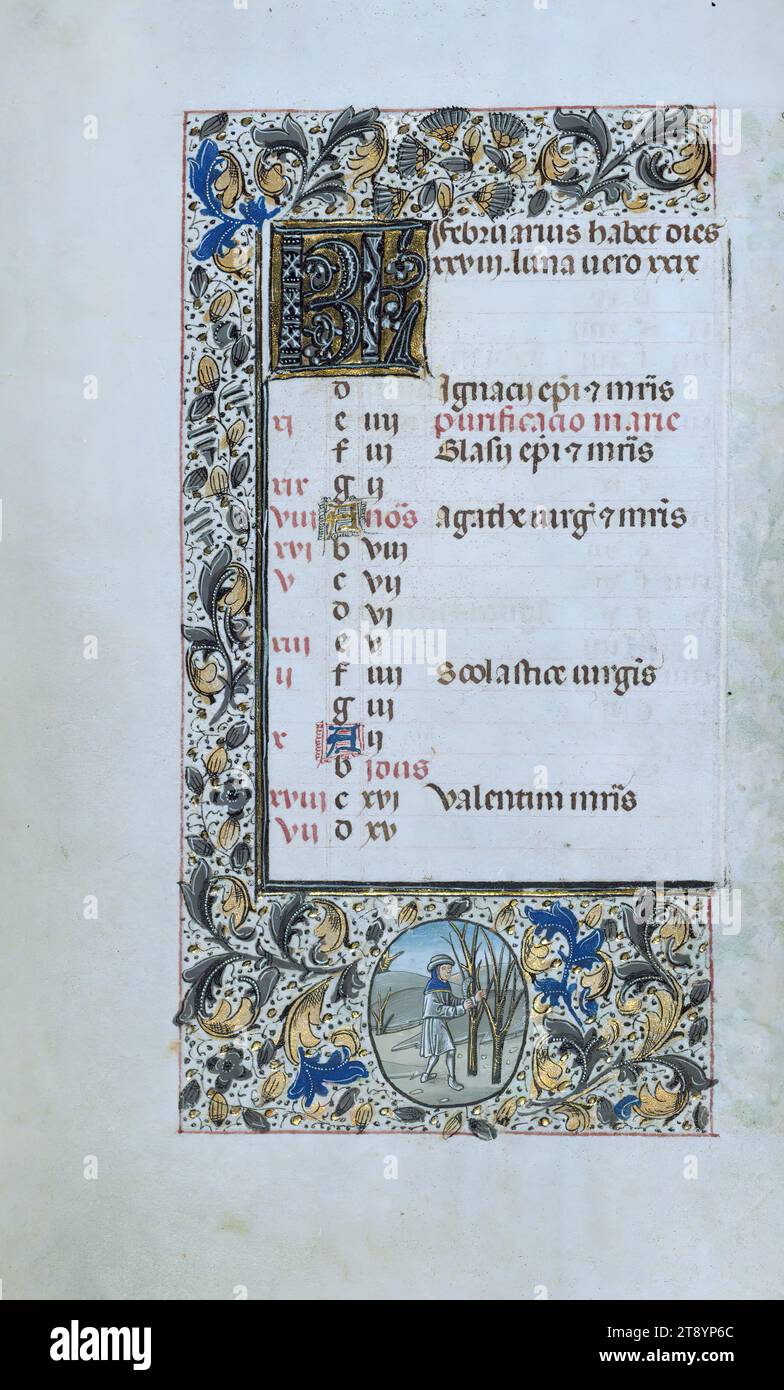 KL Februarius habet dies
xxviij. luna vero xxix
d Ignacij epi ⁊ mris
xj e iiij purificacio marie
f iij Blasij epi ⁊ mris
xix g ij
viij A nōs Agathe virg ⁊ mris
xvj b viij
v c vij
d vj
xiij e v
ij f iiij Scolastice virgis
g iij
x A ij
b jdus
xviij c xvj Valentini mris
vij d xv
alamy
Image ID: 2T8YP6C
www.alamy.com